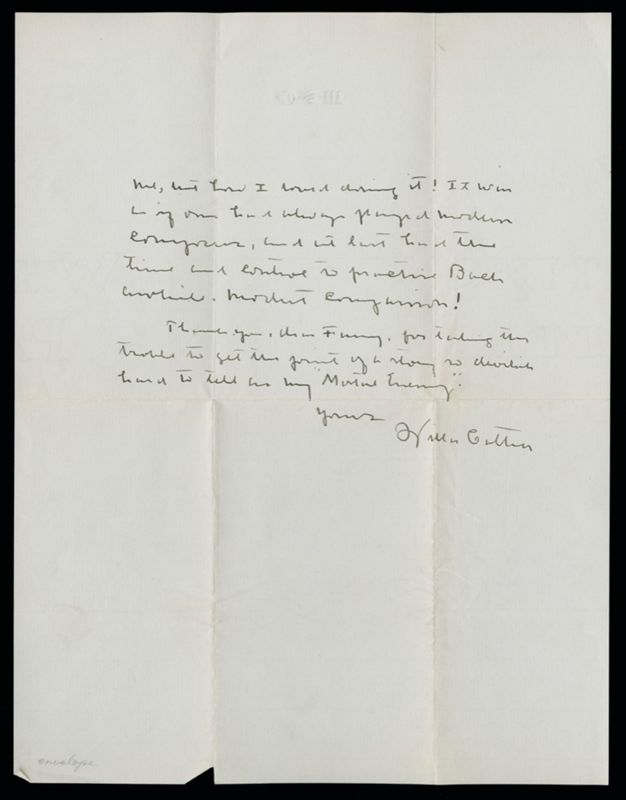 me, but how I loved doing it! It was
as if one had always played modern
composers, and at last had the
time and control to practice Bach
awhile. Modest comparison!
Thank you, dear Fanny, for taking the
trouble to get the point of a story so devilish
hard to tell as my "Mortal Enemy".
Yours
Willa Cather
envelope